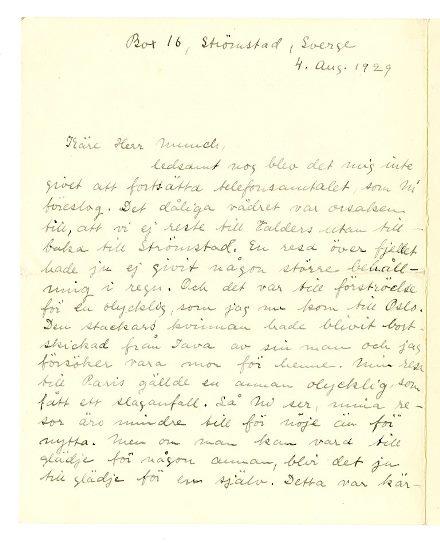 Box 16, Strömstad, Sverge
4. Aug. 1929
Käre Herr Munch,
ledsamt nog blev det mig inte
givet att fortsätta telefonsamtalet, som Ni
föreslog. Det dåliga vädret var orsaken
till, att vi ej reste till utan till-
baka till Strömstad. En resa över fjellet
hade ju ej givit någon större behåll-
ning i regn. Och det var till förströelse
för en olycklig, som jag nu kom till Oslo.
Den stackars kvinnan hade blivit bort-
skickad från Java av sin man och jag
försöker vara mor för henne. Min resa
till Paris gällde en annan olycklig som
fått ett slaganfall. Så Ni ser, mina re-
sor äro mindre till för nöje än för
nytta. Men om man kan vara till
glädje för någon annan, blir det ju
till glädje för en själv. Detta var kär-